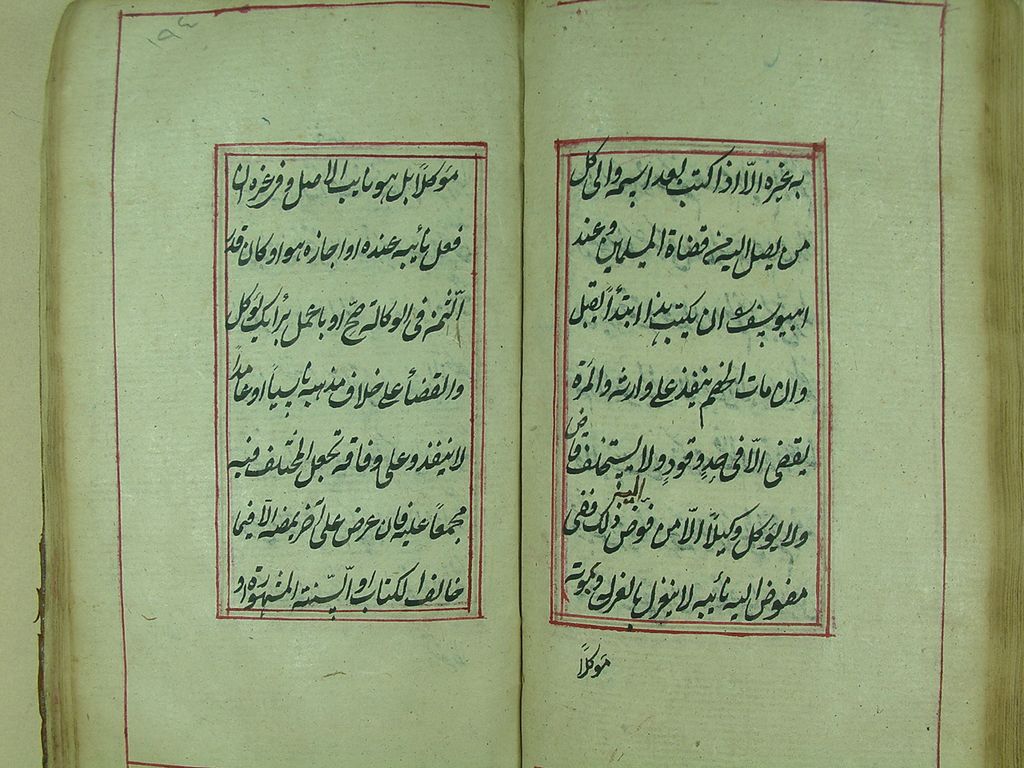 به غيره الّا اذا كتب بعد اسمه والى كل
من يصل اليه من قضاة المسلمين وعند
ابيوسف ان يكتب بذا ابتدأ يقبل
وان مات الخصم ينفذ على وارثه والمرة
يقضى الّا فى حدٍ وقودٍ ولا يستخلف قاض
ولا يوكل وكيلاً الّا من فوض اليه ذلك ففى
مفوض اليه نائبه لا ينعزل بالعزل وبموته
موكلاً
١٩٤
موكلاً بل هو نايب الاصل وفى غيره ان
فعل نائبه عنده او اجازه هو او كان قدر
الثمن فى الوكالة صحّ او باعمل برأيك يوكل
والقضأ على خلاف مذهبه ناسياً او عامداً
لا ينفذ وعلى وفاقه تجعل المختلف فيه
مجمعاً عليه فان عرض على آخر يمضه الّا فيما
خالف الكتاب او السّنته المشهورة او